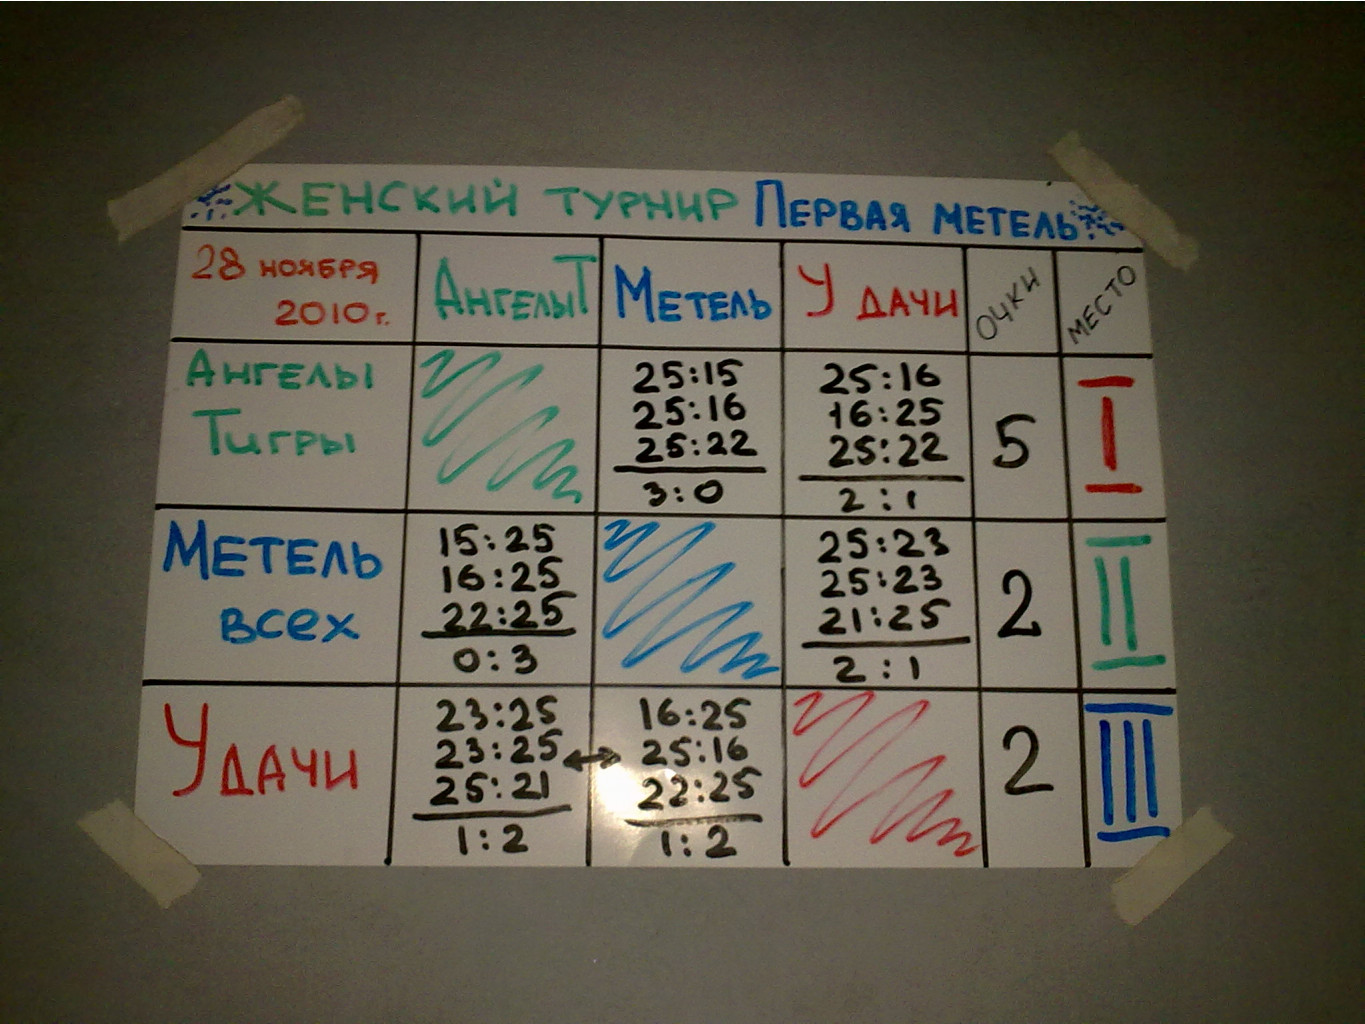 ЖЕНСКИЙ ТУРНИР ПЕРВАЯ МЕТЕЛЬ
28 НОЯБРЯ 2010г. АНГЕЛЫ Т МЕТЕЛЬ УДАЧИ ОЧКИ МЕСТО
АНГЕЛЫ ТИГРЫ
25:15
25:16
25:22
3:0
25:16
16:25
25:22
2:1
5
I
МЕТЕЛЬ ВСЕХ
15:25
16:25
22:25
0:3
25:23
25:23
21:25
2:1
2
II
УДАЧИ
23:25
23:25
25:21
1:2
16:25
25:16
22:25
1:2
2
III